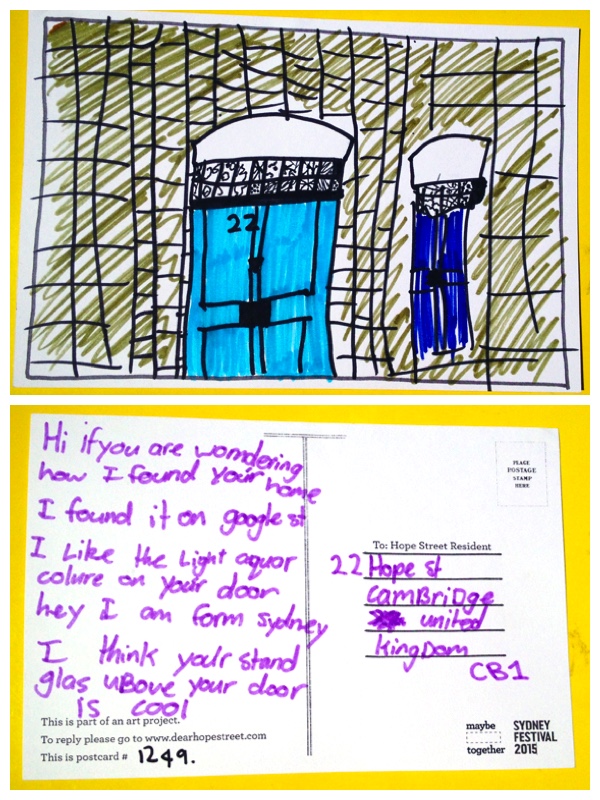 22
Hi ifyou are womdering
how I found your home
I found it on google st
I Like the Light aquar
colure on your door
hey I am form sydney
I think your stand
glas uBove your door
is cool
This is part of an art project.
To reply please go to www.dearhopestreet.com
This is postcard # 1249.
PLACE
POSTAGE
STAMP
HERE
To: Hope Street Resident
22 Hope st
CamBRiDge
united
kingDom
CB1
maybe
together
SYDNEY
FESTIVAL
2015